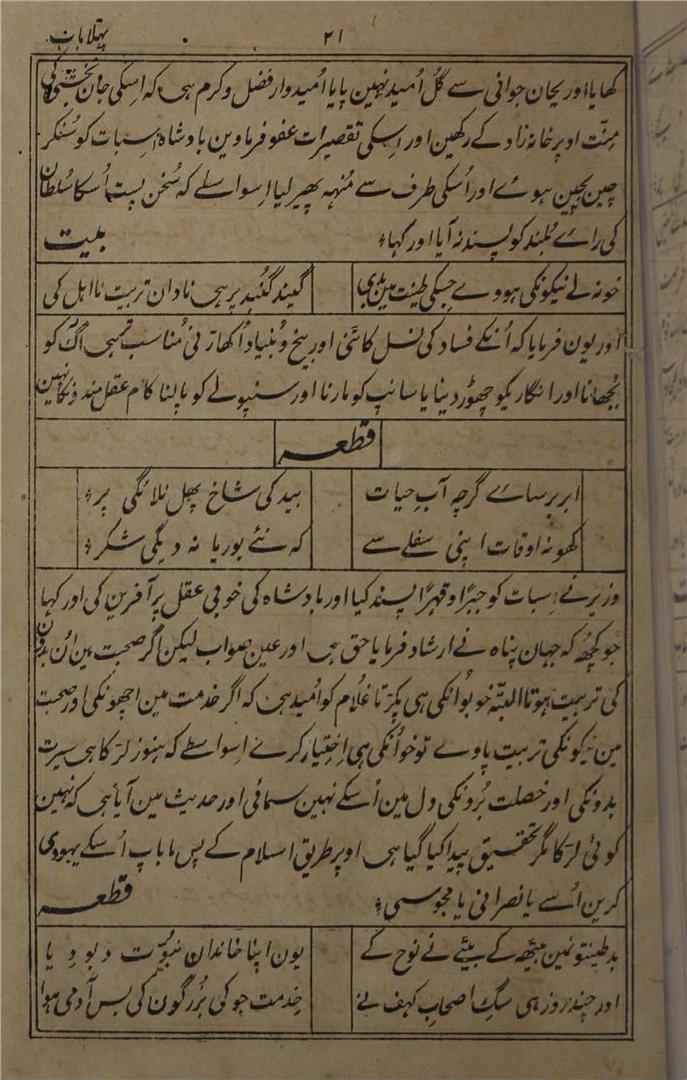 پہلا باب ۲۱
کھایا اور ریحان جوانی سے گل اُمید نہین پایا اُمیدوار فضل و کرم ہی کہ اسکی جان بخشی کی
مِنّت اوپر خانہ زاد کے رکھین اور اِسکی تقصیرات عفو فرماوین بادشاہ اِسبات کو سُنکر
چین بجبین ہوے اور اُسکی طرف سے مُنہہ پھیر لیا اِسواسطے کہ سُخن پست اُسکا سُلطان
کی راے بُلند کو پسند نہ آیا اور کہا؛ بیت
خو نہ لے نیکونکی ہووے جسکی طینت مین بدی گیند گنبد پر ہی نادان تربیت نا اہل کی
اور یون فرمایا کہ اُنکے فساد کی نسل کاٹنی اور بیخ و بُنیاد اُکھاڑنی مُناسب ہی آگ کو
بُجھانا اور انگاریکو چھوڑ دینا یا سانپ کو مارنا اور سنپولے کو پالنا کام عقلمندونکا نہین
قطعہ
ابر برساے گرچہ آبِ حیات بید کی شاخ پھل نلائگی پر؛
کھو نہ اوقات اپنی سفلے سے کہ نئے بوریا نہ دیگی شکر؛
وزیر نے اِسبات کو جبرًا و قہرًا پسند کیا اور بادشاہ کی خوبی عقل پر آفرین کی اور کہا
جو کچھہ کہ جہان پناہ نے ارشاد فرمایا حق ہی اور عین صواب لیکن اگر صحبت مین اُن بدون
کی تربیت ہوتا البتّہ خو بو اُنکی ہی پکڑتا غلام کو اُمید ہی کہ اگر خدمت مین اچھونکی اور صحبت
مین نیکونکی تربیت پاوے تو خو اُنکی ہی اِختیار کرے اِسواسطے کہ ہنوز لڑکا ہی سیرت
بدونکی اور خصلت بُرونکی دل مین اُسکے نہین سمائی اور حدیث مین آیا ہی کہ نہین
کوئی لڑکا مگر تحقیق پیدا کیا گیا ہی اوپر طریق اسلام کے پس ما باپ اُسکے یہودی
کرین اُسے یا نصرانی یا مجوسی؛ قطعہ
بد طینتونمین بیٹھہ کے بیٹے نے نوح کے یون اپنا خاندان نبوّت دبو دیا
اور چند روز ہی سگِ اصحابِ کہف نے خِدمت جو کی بزرگون کی بس آدمی ہوا